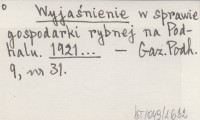 Wyjaśnienie w sprawie
gospodarki rybnej na Pod-
halu. 1921... — Gaz. Podh.
9, nr 31.